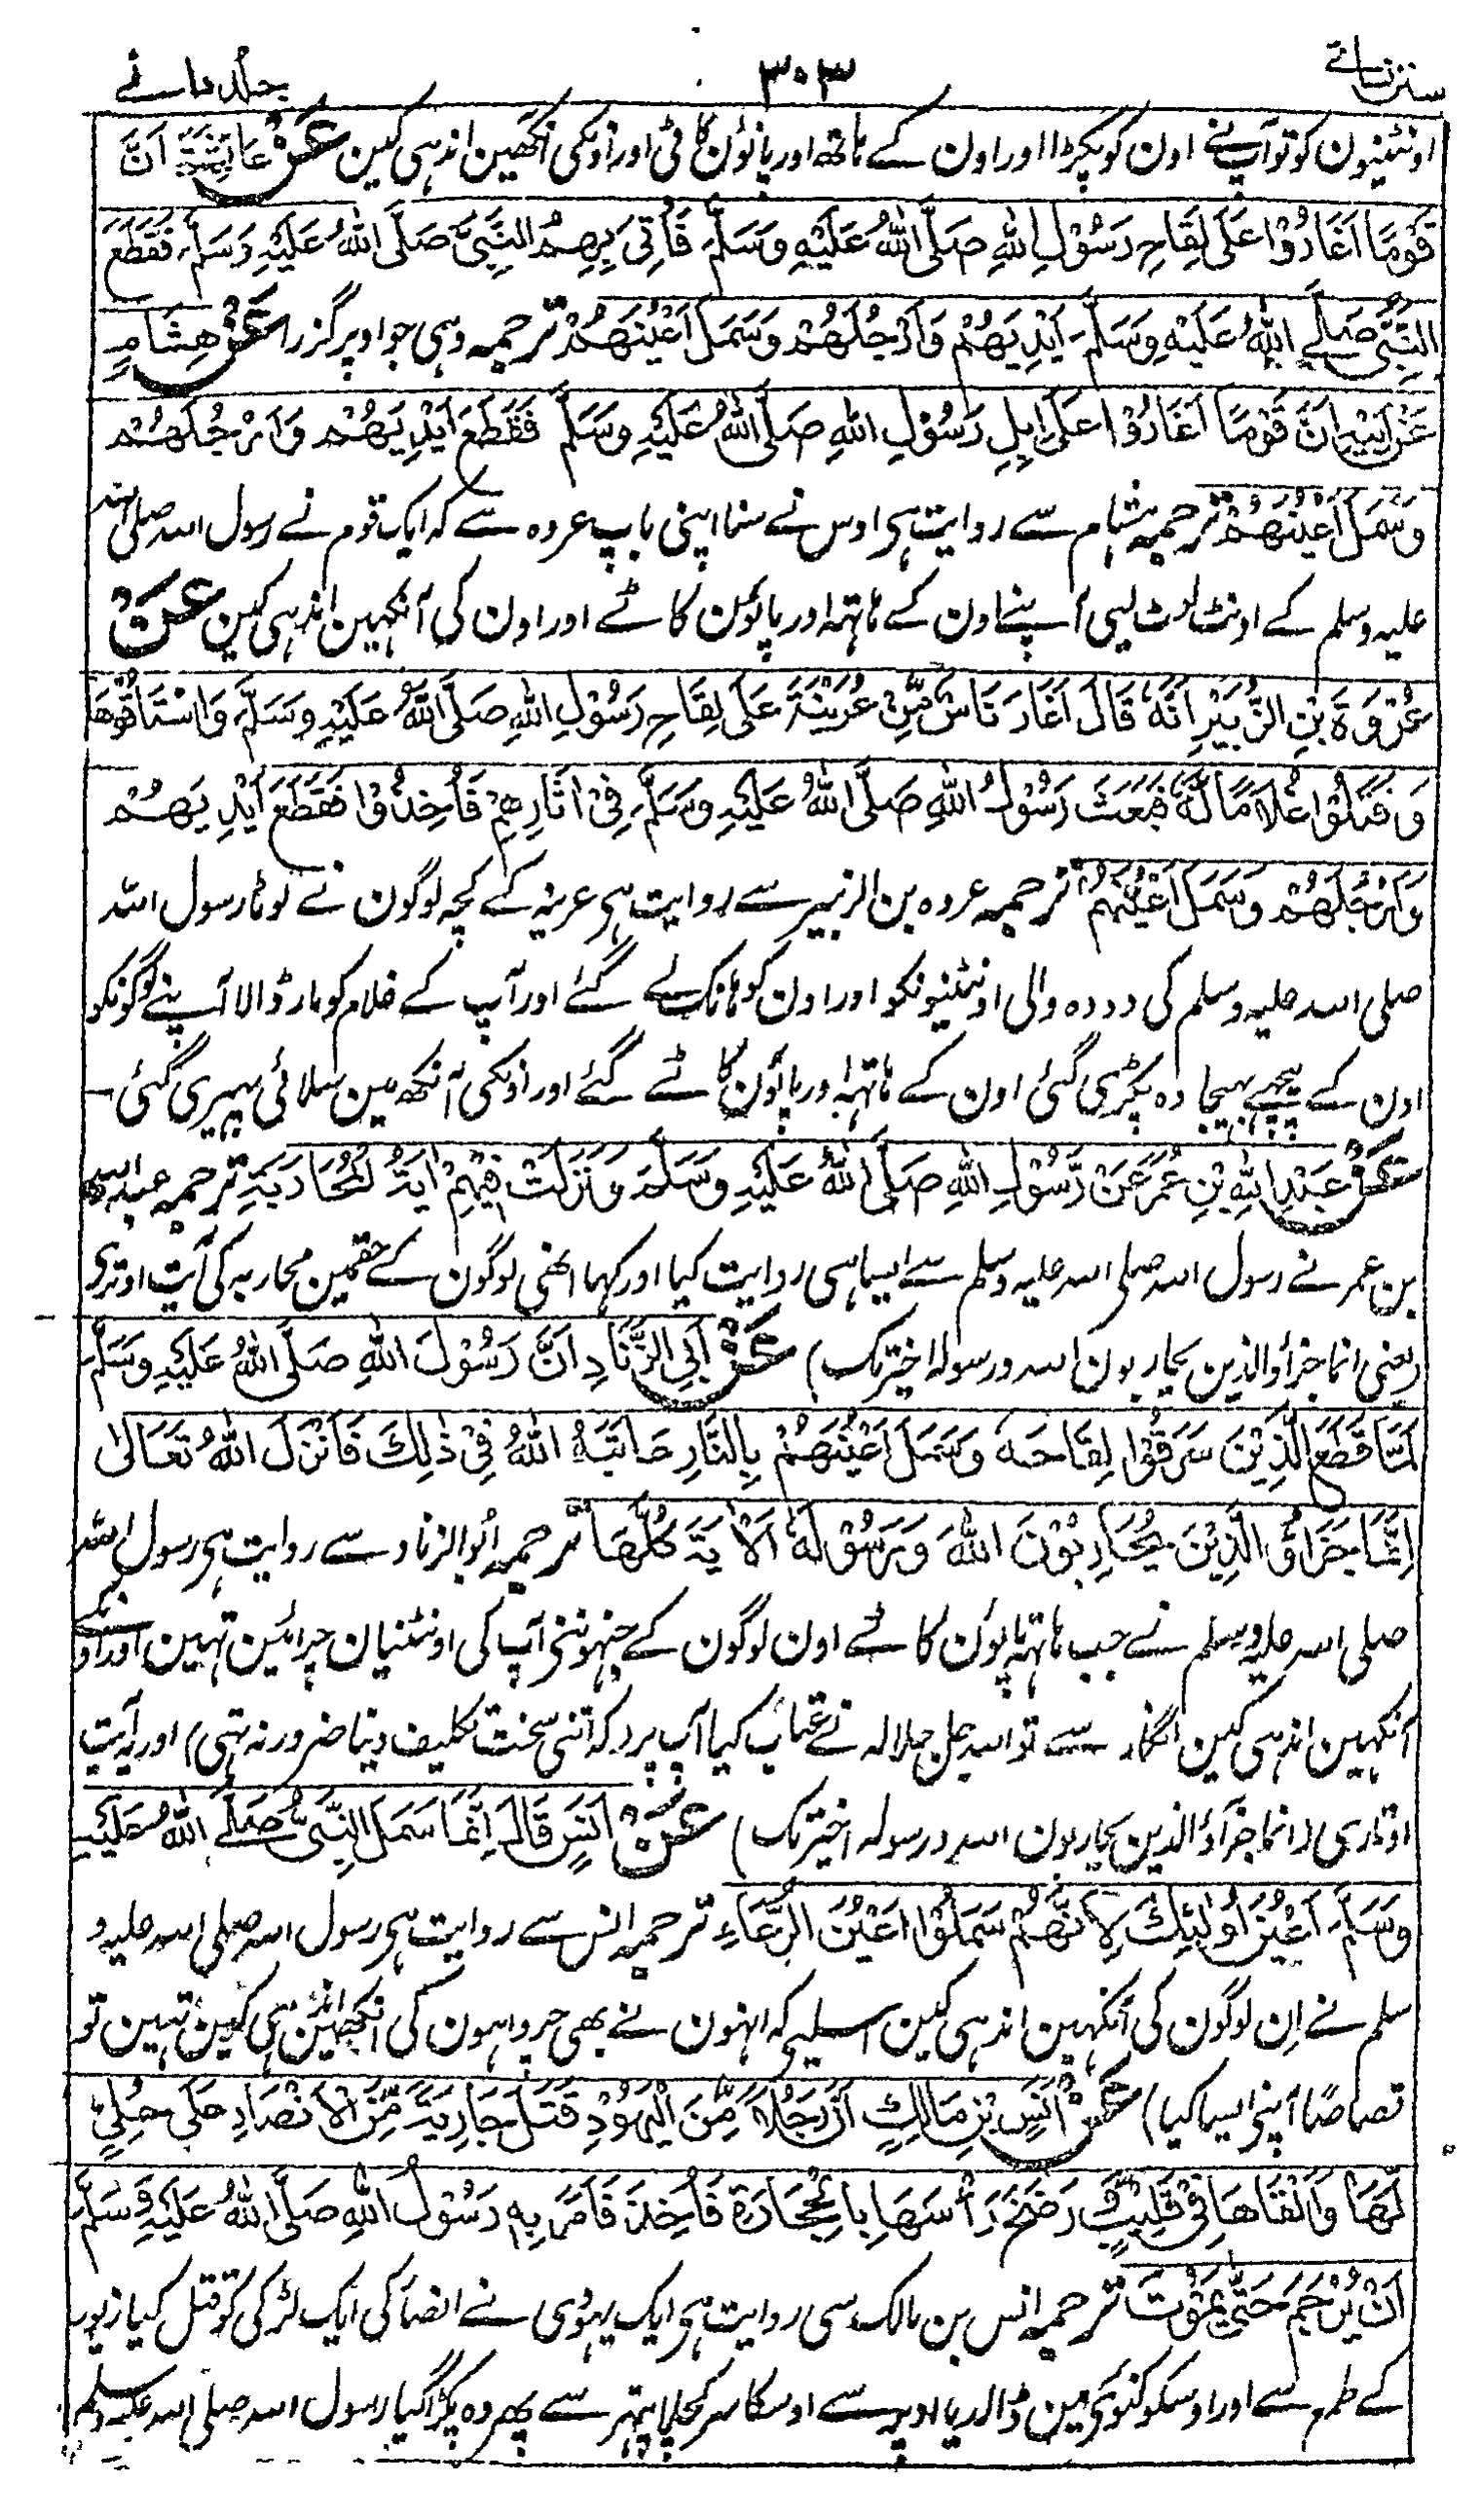 سنن نسائے ۳۰۳ جلد ثانے
اونٹنیون کو تو آپنے اون کو پکڑا اور اون کے ہاتھ اور پانؤن کاٹی اور اونکی انکھین اندہی کین عَنْ عَائِشَةَ اَنَّ
قَوْمًا اَغَارُوْا عَلَى لِقَاحِ رَسُوْلِ اللهِ صَلَّى اللهُ عَلَيْهِ وَسَلَّمَ فَاُتِيَ بِهِمُ النَّبِيُّ صَلَّى اللهُ عَلَيْهِ وَسَلَّمَ فَقَطَعَ
النَّبِيُّ صَلَّے اللهُ عَلَيْهِ وَسَلَّمَ اَيْدِيَهُمْ وَاَرْجُلَهُمْ وَسَمَلَ اَعْيُنَهُمْ ترجمہ وہی جو اوپر گزرا عَنْ هِشَامٍ
عَنْ اَبِيْهِ اَنَّ قَوْمًا اَغَارُوْا عَلَى اِبِلِ رَسُوْلِ اللهِ صَلَّى اللهُ عَلَيْهِ وَسَلَّمَ فَقَطَعَ اَيْدِيَهُمْ وَاَرْجُلَهُمْ
وَسَمَلَ اَعْيُنَهُمْ ترجمہ ہشام سے روایت ہی اوس نے سنا اپنی باپ عروہ سے کہ ایک قوم نے رسول اللہ صلی اللہ
علیہ وسلم کے اونٹ لوٹ لیی آپنے اون کے ہاتہہ اور پانؤن کاٹے اور اون کی آنکہین اندہی کین عَنْ
عُرْوَةَ بْنِ الزُّبَيْرِ اَنَّهُ قَالَ اَغَارَ نَاسٌ مِّنْ عُرَيْنَةَ عَلَى لِقَاحِ رَسُوْلِ اللهِ صَلَّى اللهُ عَلَيْهِ وَسَلَّمَ وَاسْتَاقُوْهَا
وَقَتَلُوْا غُلَامًا لَهُ فَبَعَثَ رَسُوْلُ اللهِ صَلَّى اللهُ عَلَيْهِ وَسَلَّمَ فِيْ اٰثَارِهِمْ فَاُخِذُوْا فَقَطَعَ اَيْدِيَهُمْ
وَاَرْجُلَهُمْ وَسَمَلَ اَعْيُنَهُمْ ترجمہ عروہ بن الزبیر سے روایت ہی عرینہ کے کچہ لوگون نے لوٹا رسول اللہ
صلی اللہ علیہ وسلم کی دودہ والی اونٹنیونکو اور اون کو ہانک لے گئے اور آپ کے غلام کو مار ڈالا آپنے لوگونکو
اون کے پیچہے بہیجا وہ پکڑی گئی اون کے ہاتہہ اور پاؤن کاٹے گئے اور اونکی آنکھ مین سلائی پہیری گئی –
عَنْ عَبْدِ اللهِ بْنِ عُمَرَ عَنْ رَّسُوْلِ اللهِ صَلَّى اللهُ عَلَيْهِ وَسَلَّمَ وَنَزَلَتْ فِيْهِمْ اٰيَةُ الْمُحَارَبَةِ ترجمہ عبد اللہ
بن عمر نے رسول اللہ صلی اللہ علیہ وسلم سے ایسا ہی روایت کیا اور کہا انھی لوگون کے حقمین محاربہ کی آیت اوتری
(یعنی انما جزاؤ الذین یحاربون اللہ ورسولہ اخیر تک) عَنْ اَبِي الزِّنَادِ اَنَّ رَسُوْلَ اللهِ صَلَّى اللهُ عَلَيْهِ وَسَلَّمَ
لَمَّا قَطَعَ الَّذِيْنَ سَرَقُوْا لِقَاحَهُ وَسَمَلَ اَعْيُنَهُمْ بِالنَّارِ عَاتَبَهُ اللهُ فِيْ ذٰلِكَ فَاَنْزَلَ اللهُ تَعَالٰى
اِنَّمَا جَزَاؤُ الَّذِيْنَ يُحَارِبُوْنَ اللهَ وَرَسُوْلَهُ الْاٰيَةَ كُلَّهَا ترجمہ ابو الزناد سے روایت ہی رسول اللہ
صلی اللہ علیہ وسلم نے جب ہاتہہ پاؤن کاٹے اون لوگون کے جنہونی آپ کی اونٹنیان چرائین تہین اور اونکے
آنکہین اندہی کین انگار سے تو اللہ جل جلالہ نے عتاب کیا آپ پر (کہ اتنی سخت تکلیف دینا ضرور نہ تہی) اور یہ آیت
اوتاری (انما جزآؤ الذین یحاربون اللہ ورسولہ اخیر تک) عَنْ اَنَسٍ قَالَ اِنَّمَا سَمَلَ النَّبِيُّ صَلَّے اللهُ عَلَيْهِ
وَسَلَّمَ اَعْيُنَ اُولٰئِكَ لِاَنَّهُمْ سَمَلُوْا اَعْيُنَ الرُّعَاءِ ترجمہ انس سے روایت ہی رسول اللہ صلی اللہ علیہ و
سلم نے اِن لوگون کی آنکہین اندہی کین اسلیی کہ انہون نے بھی چرواہون کی انکہین اندہی کین تہین تو
قصاصًا آپنی ایسا کیا) عَنْ اَنَسِ بْنِ مَالِكٍ اَنَّ رَجُلًا مِّنَ الْيَهُوْدِ قَتَلَ جَارِيَةً مِّنَ الْاَنْصَارِ عَلَى حُلِيٍّ
لَّهَا وَاَلْقَاهَا فِيْ قَلِيْبٍ وَّرَضَخَ رَأْسَهَا بِالْحِجَارَةِ فَاُخِذَ فَاَمَرَ بِهِ رَسُوْلُ اللهِ صَلَّى اللهُ عَلَيْهِ وَسَلَّمَ
اَنْ يُّرْجَمَ حَتّٰى يَمُوْتَ ترجمہ انس بن مالک سی روایت ہی ایک یہودی نے انصار کی ایک لڑکی کو قتل کیا زیور
کے طمع سے اور اوسکو کنوئی مین ڈالدیا اوپر سے اوسکا سر کچلا پتہر سے پھر وہ پکڑا گیا رسول اللہ صلی اللہ علیہ وسلم